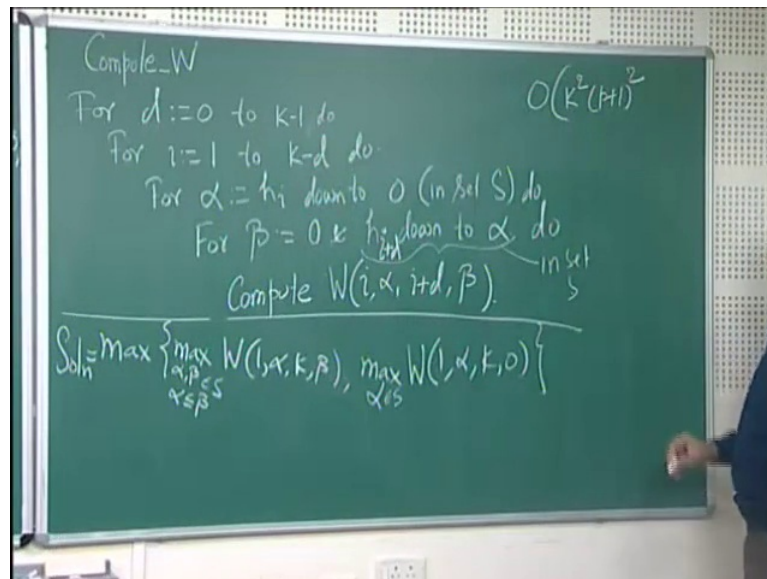 Compute_W
O(k²(k+1)²
For d := 0 to k-1 do
For i := 1 to k-d do.
For α := hi down to 0 (in set S) do
For β := 0 & hi+d down to α do
in set S
Compute W(i, α, i+d, β).
Soln = max { max α,β∈S α≤β W(1,α,k,β), max α∈S W(1,α,k,0) }